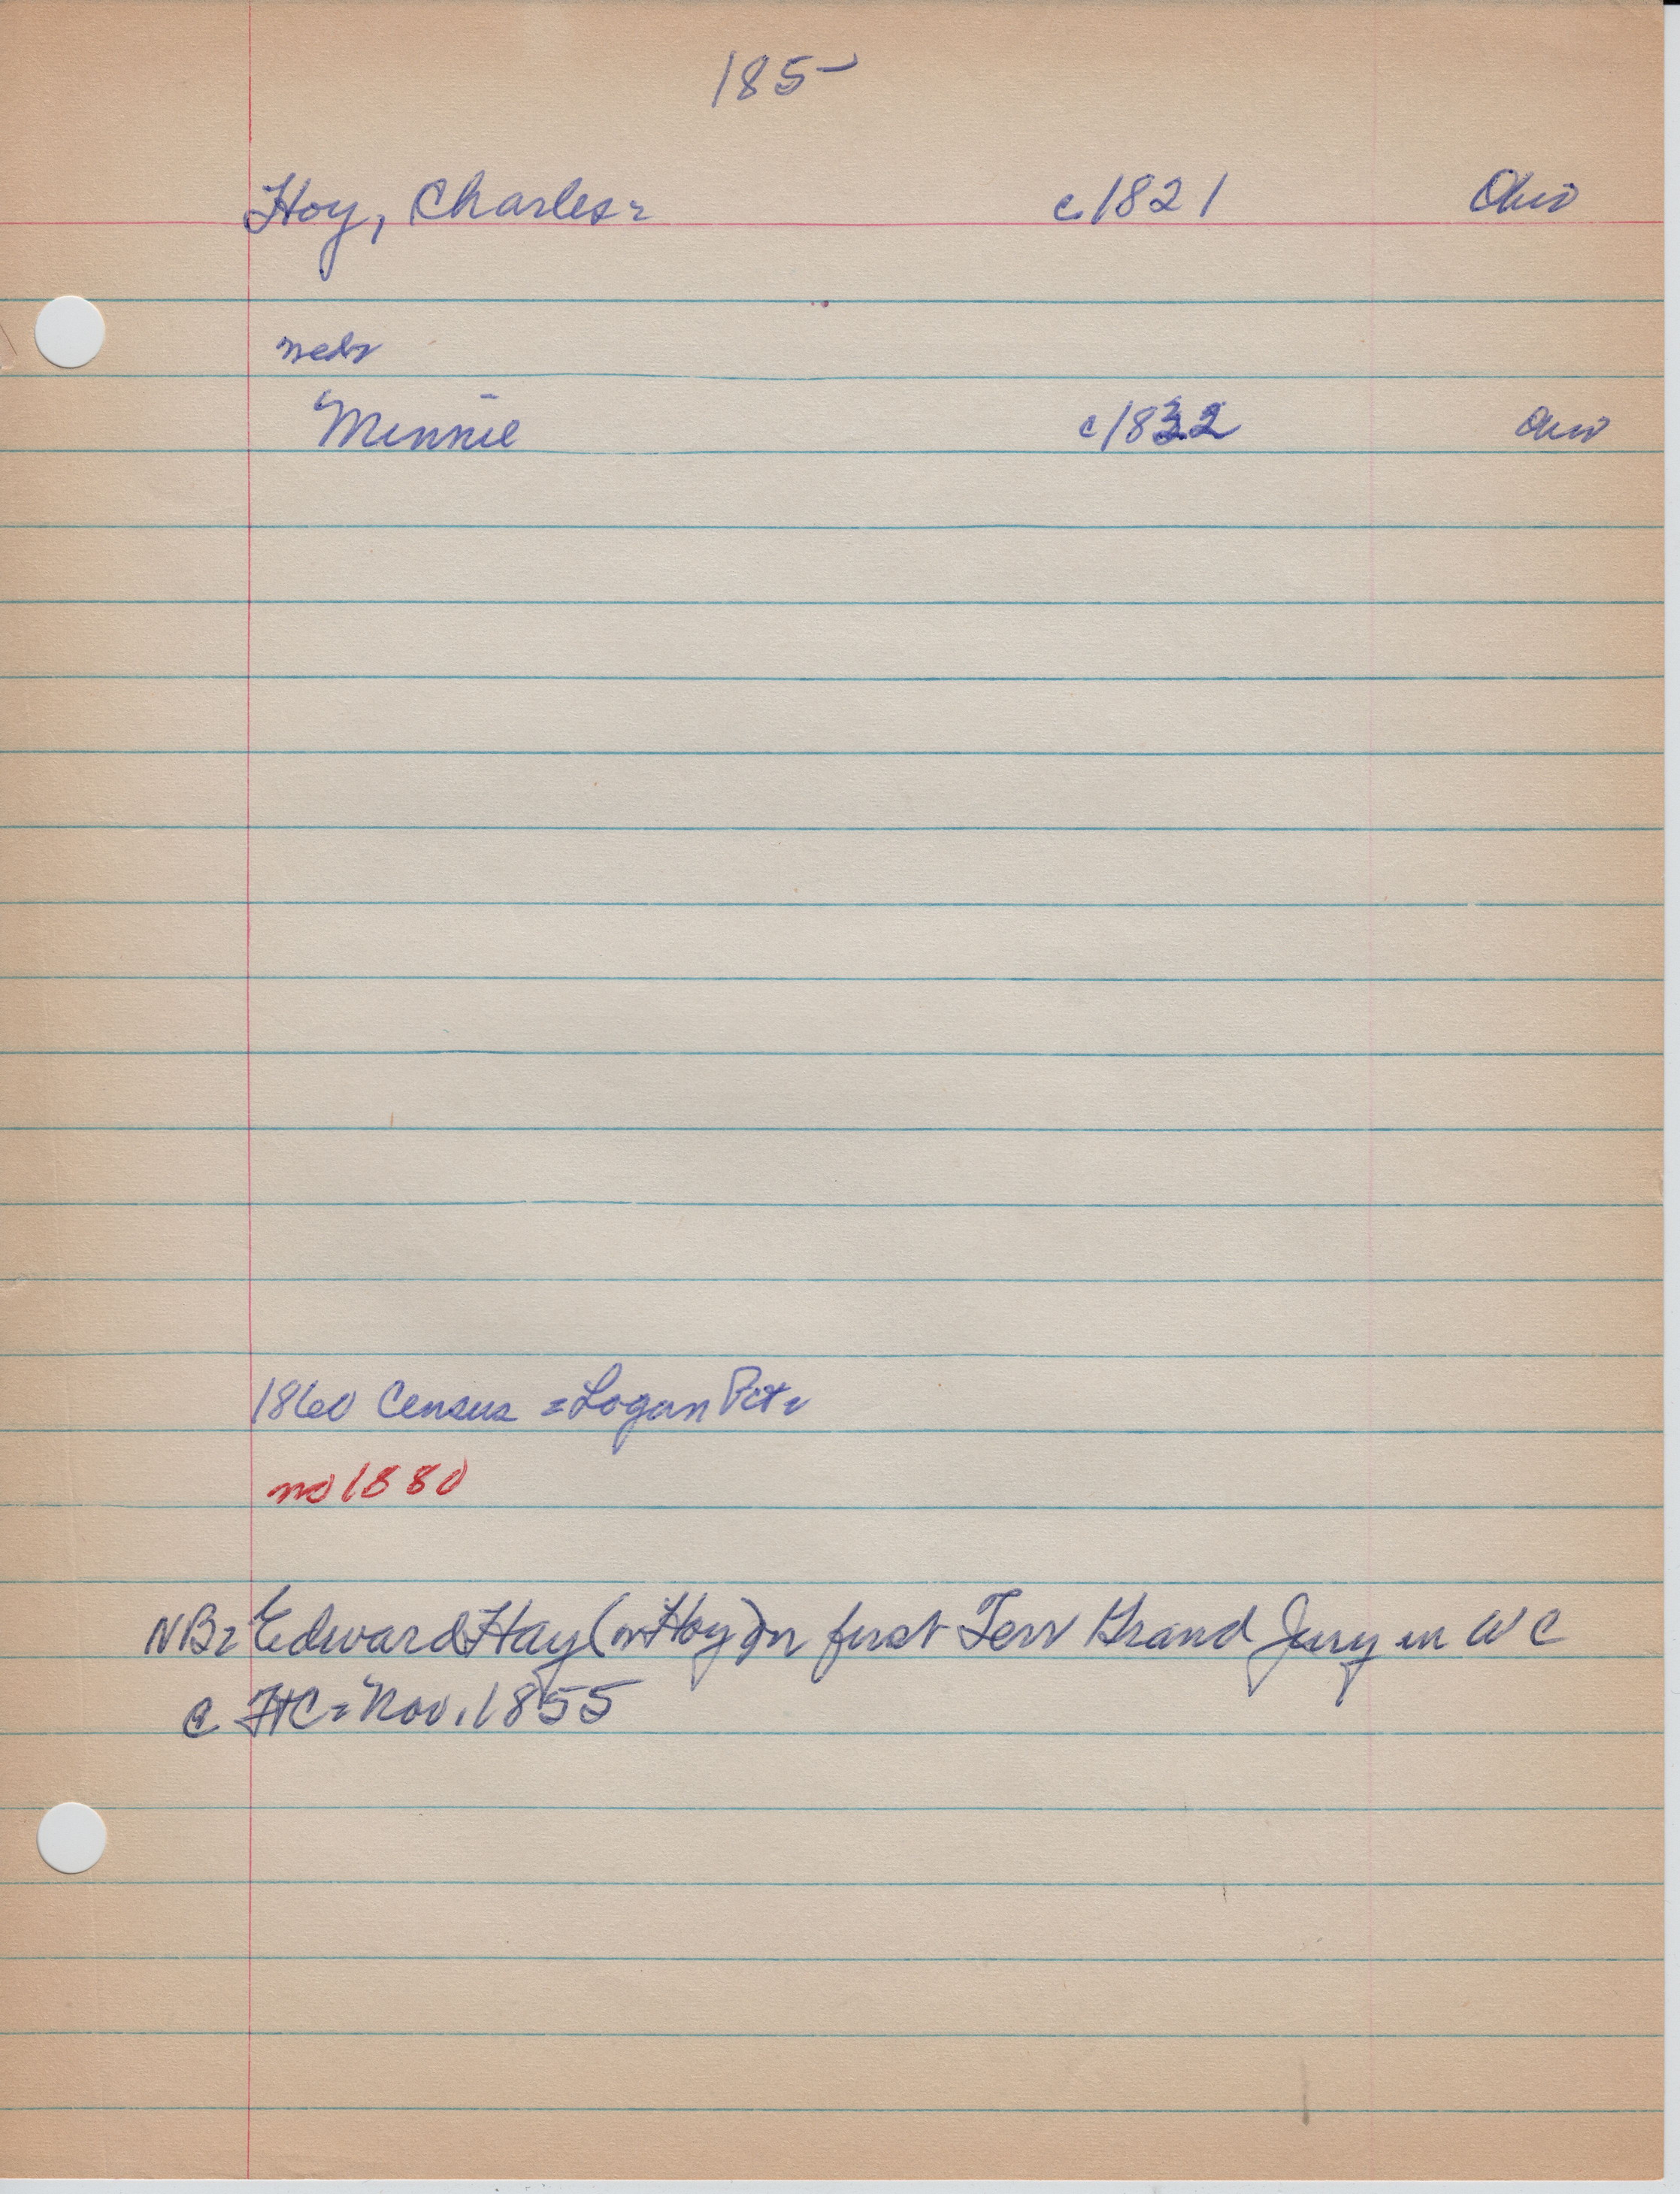 185-
Hoy, Charles= c.1821 Ohio
Minnie c1832 Ohio
1860 Census =Logan Pct=
no 1880
NB= Edward Hay (or Hoy) on first Terr Grand Jury in WC
@ FtC= Nov. 1855